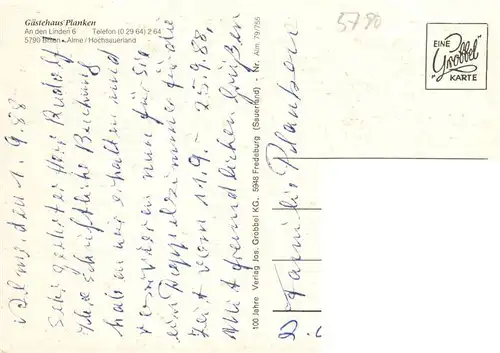 Gästehaus Planken
An den Linden 6 Telefon (0 29 64) 2 64
5790 Brilon-Alme / Hochsauerland
5790
EINE
Grobbel
KARTE
Alme, den 1.9.88
Sehr geehrter Herr Rudolf
Ihre schriftliche Buchung
haben wir erhalten und
reservieren nun für Sie
ein Doppelzimmer für die
Zeit vom 11.9. - 25.9.88.
Mit freundlichen Grüßen
Familie Planken
100 Jahre Verlag Jos. Grobbel KG, 5948 Fredeburg (Sauerland) - Nr. Alm. 79/755